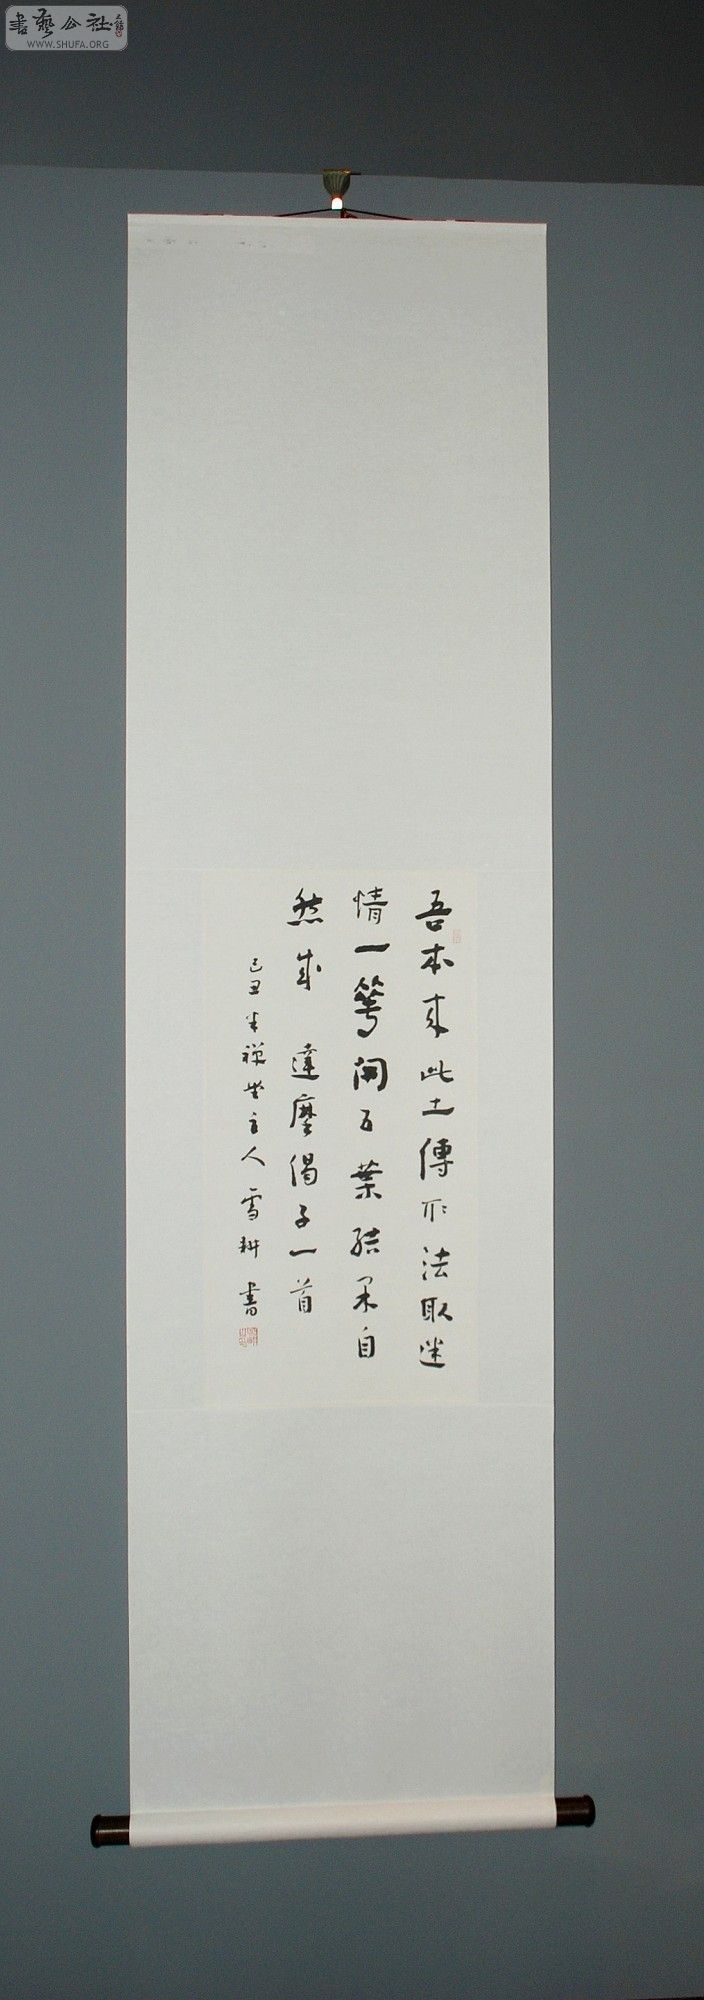 書藝公社
WWW.SHUFA.ORG
吾本来此土傳不法取迷
情一萼開五葉結果自
然成 達摩偈子一首
己丑半禪堂主人雪耕書